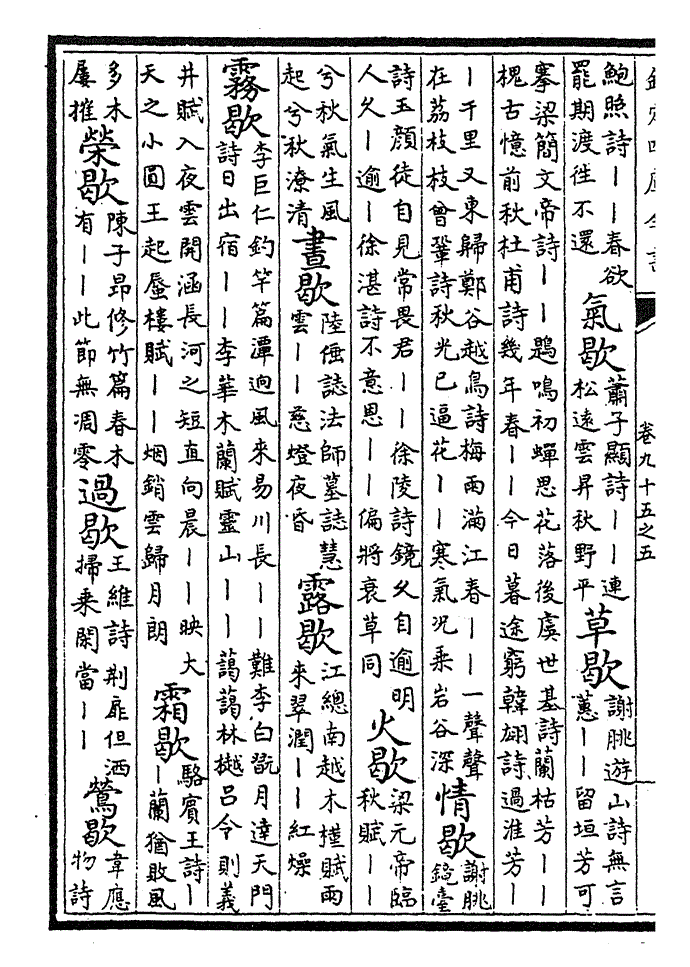 欽定四庫全書
卷九十五之五
鮑照詩——春欲
罷期渡徃不還
氣歇
蕭子顯詩——連
松遠雲昇秋野平
草歇
謝朓遊山詩無言
蕙——留垣芳可
搴梁簡文帝詩——鶗鳴初蟬思花落後虞世基詩蘭枯芳——
槐古憶前秋杜甫詩幾年春——今日暮途窮韓翃詩過淮芳—
—千里又東歸鄭谷越鳥詩梅雨滿江春——一聲聲
在荔枝枝曾鞏詩秋光已逼花——寒氣况乗岩谷深
情歇
謝朓
鏡臺
詩玉顔徒自見常畏君——徐陵詩鏡乆自逾明
人乆—逾—徐湛詩不意恩——偏將衰草同
火歇
梁元帝臨
秋賦——
兮秋氣生風
起兮秋潦清
晝歇
陸倕誌法師墓誌慧
雲——慈燈夜昏
露歇
江總南越木槿賦雨
來翠潤——紅燥
霧歇
李巨仁釣竿篇潭逈風來易川長——難李白翫月達天門
詩日出宿——李華木蘭賦靈山———藹藹林樾吕令則義
井賦入夜雲開涵長河之短直向晨——映大
天之小圓王起蜃樓賦——烟銷雲歸月朗
霜歇
駱賓王詩—
—蘭猶敗風
多木
屢摧
榮歇
陳子昂修竹篇春木
有——此節無凋零
過歇
王維詩荆扉但洒
掃乗閑當——
鶯歇
韋應
物詩